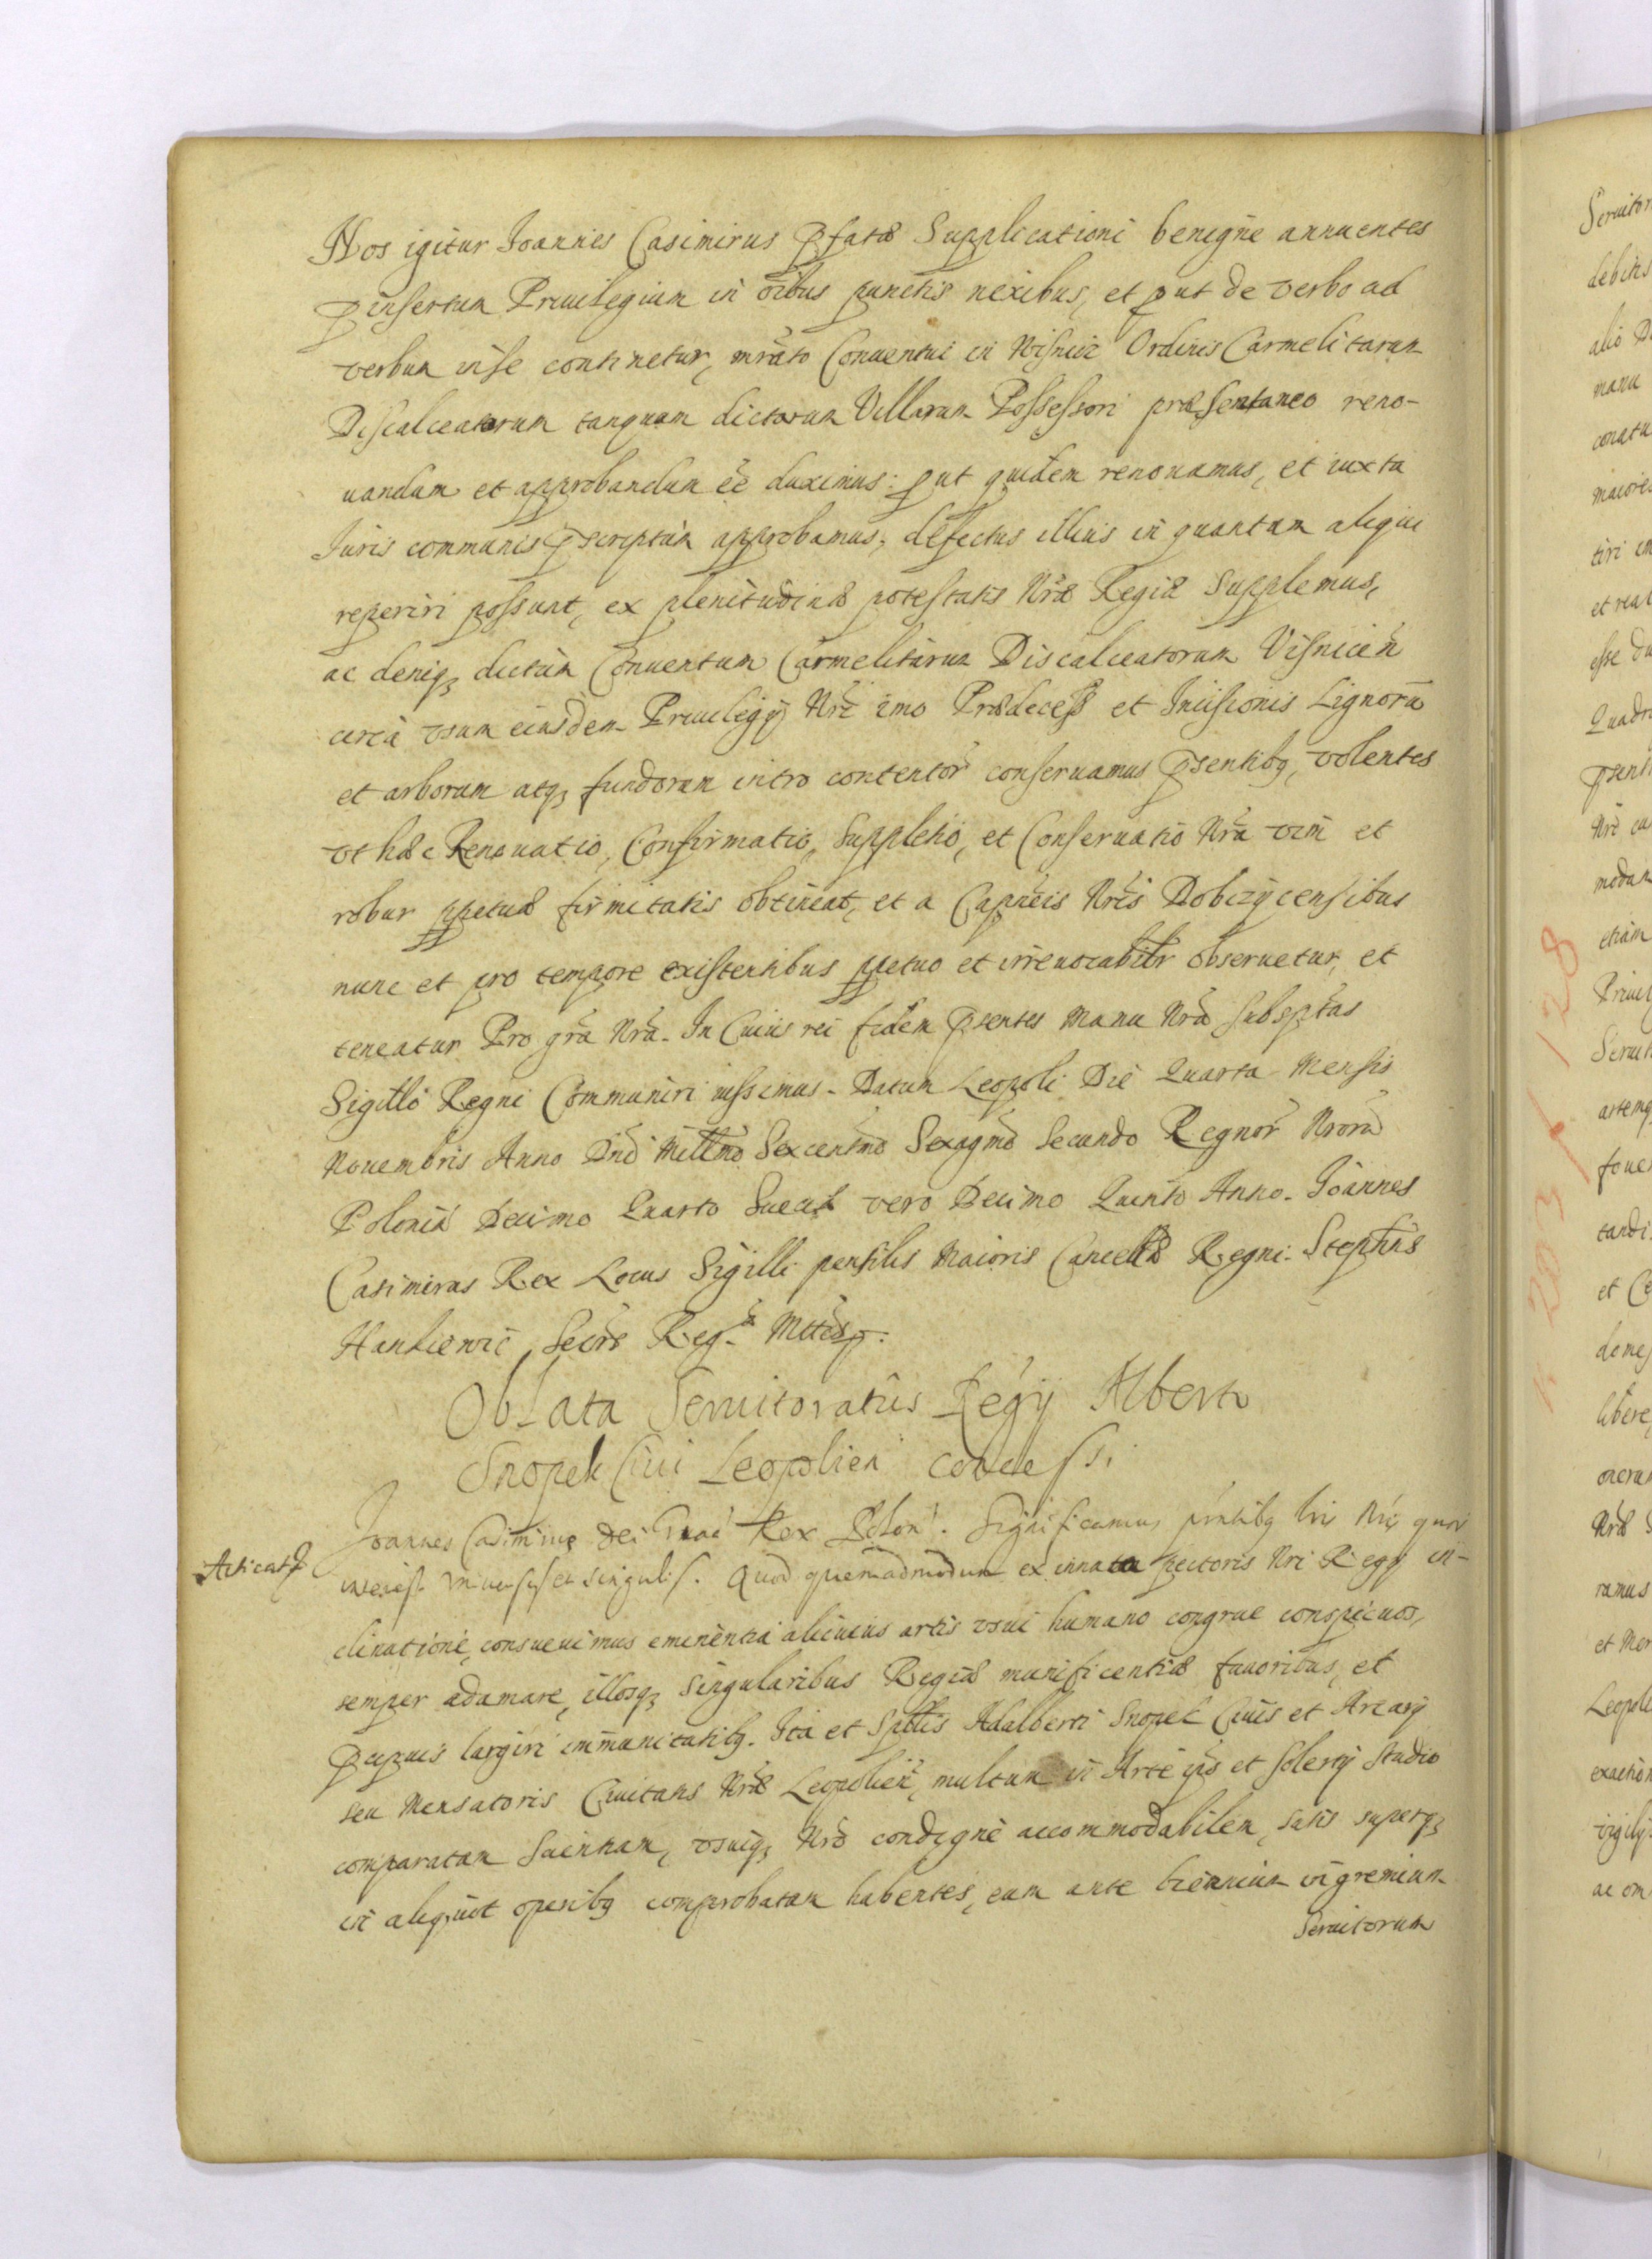 Nos igitur Joannes Casimirus pfatæ Supplicationi benigne annuentes
pinsertum Priuilegium in oibus punctis nexibus, et put de verbo ad
verbum in se continetur, mrato Conuentui in Wisnicz Ordinis Carmelitarum
Discalceatorum tanquam dictarum Villarum Possessori præsentaneo reno-
uandum et approbandum eē duximus: put quidem renouamus, et iuxta
Juris communis pscriptum approbamus, defectus illius in quantum aliqui
reperiri possunt, ex plenitudine potestatis Nræ Regiæ Supplemus,
ac deniq dictum Conuentum Carmelitarum Discalceatorum Visnicen
circa vsum eiusdem Priuilegÿ Nri imo Prædecess et Incisionis Lignorū
et arborum atq fundorum intro contentor conseruamus psentibq, volentes
vt hæc Renouatio, Confirmatio, Suppletio, et Conseruatio Nra vim et
robur ppetuæ firmitatis obtineat, et a Capneis Nris Dobczÿcensibus
nunc et pro tempore existentibus ppetuo et irreuocabilr obseruetur, et
teneatur Pro gra Nra. In Cuius rei fidem psentes Manu Nra subsptas
Sigillo Regni Communiri iussimus. Datum Leopoli Die Quarta Mensis
Nouembris Anno Dni Millmo Sexcentmo Sexagmo Secundo Regnor Nrorū
Poloniæ Decimo Quarto Sueciæ vero Decimo Quinto Anno. Joannes
Casimirus Rex Locus Sigilli pensilis Maioris Cancellæ Regni. Stephns
Hankiewic Secrs Reg. Mttis
Oblata Seruitoratus Regÿ Alberto
Snopek Ciui Leopolien concessi
Acticat
Joannes Casimirus Dei Grae Rex Polon. Significamus pntibq lris Nris quor
interest vniuersis et singulis. Quod quemadmodum ex innata pectoris Nri Regÿ in-
clinatione, consueuimus eminentia alicuius artis vsui humano congrue conspicuos,
semper adamare, illosq singularibus Regiæ munificentiæ fauoribus, et
pcipuis largiri immunitatibq. Ita et Spttis Adalberti Snopek Ciuis et Arcarÿ
seu Mensatoris Ciuitatis Nræ Leopolien, multum in Arte ips et solerti Studio
comparatam Scientiam, vsuiq Nro condigne accommodabilem, satis superq
in aliquot operibq comprobatam habentes, eum ante biennium in gremium
Seruitorum